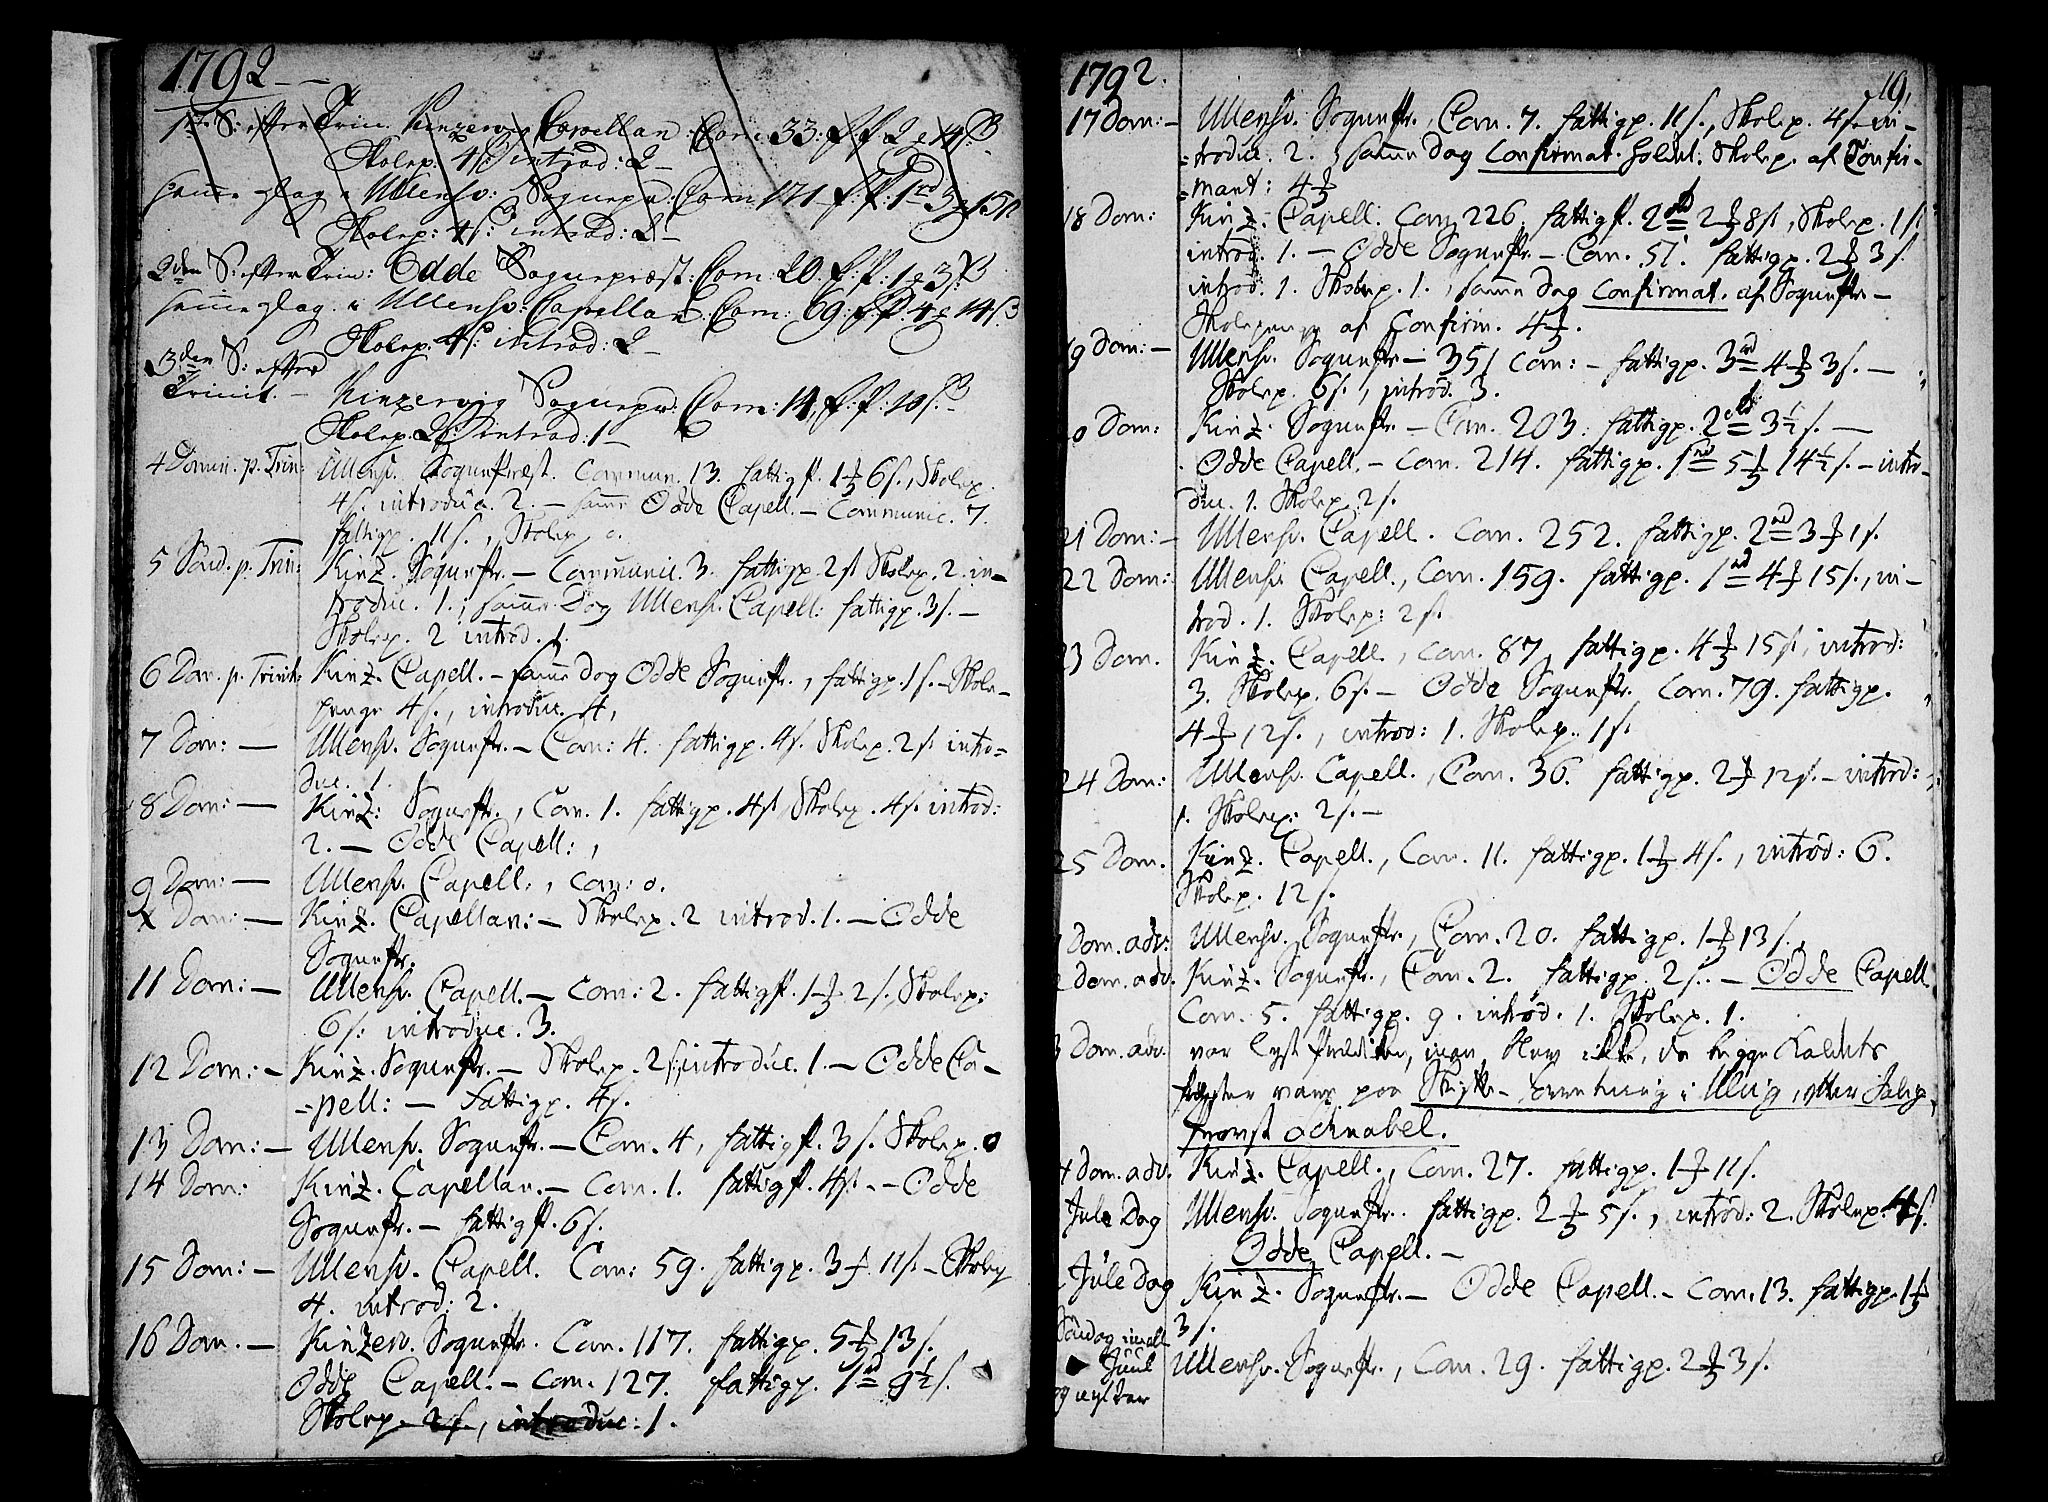 1792 —
1ste S: efter Trin. Kinzervig Capellan: Com: 33: f: P. 2 4 ß
Skolep. 4 ß introd: 2 —
samme Dag i Ullensv: Sognepr: Com: 171 f: P: 1 rd 3 15 ß
Skolep: 4 ß: introd: 2 —
2den S: efter Trin: Odde Sognepræst: Com: 20. f: P: 1 3 ß
samme Dag i Ullensv: Capellan: Com: 69: f: P 4 14 ß
Skolep: 4 ß: introd: 2 —
3den S: efter
Trinit. — Kinzervig Sognepr: Com: 14, f: P: 10 ß —
Skolep. 2 ß introd: 1 —
4 Domin. p. Trin: Ullensv. Sognepræst. Commun. 13. fattigp. 1 6 s., Skolep.
4 s. introduc. 2. — samme Odde Capell. — Communic. 7.
fattigp. 11 s., Skolep. o.
5 Sönd. p. Trin: Kinz. Sognepr. — Communic. 3. fattigp. 2 s Skolep. 2. in-
troduc. 1., samme Dag Ullensv. Capell: fattigp. 3 s. —
Skolep. 2 introd. 1.
6 Dom. p. Trinit: Kinz. Capell. — samme dag Odde Sognepr., fattigp. 1 s. — Skole-
penge 4 s., introduc. 4,
7 Dom: — Ullensv. Sognepr. — Com: 4. fattigp. 4 s. Skolep. 2 s. intro-
duc. 1.
8 Dom: — Kinz: Sognepr., Com. 1. fattigp. 4 s. Skolep. 4 s. introd:
2. — Odde Capell:,
9 Dom: — Ullensv. Capell:, Com: o.
X Dom: — Kinz. Capellan: — Skolep. 2 introd. 1. — Odde
Sognepr.
11 Dom: — Ullensv. Capell. — Com: 2. fattigp. 1 2 s. Skolep:
6 s: introduc. 3.
12 Dom: — Kinz. Sognepr. — Skolep. 2 s. introduc. 1. — Odde Ca-
=pell: — fattigp. 4 s.
13 Dom: — Ullensv. Sognepr. — Com. 4, fattigp. 3 s. Skolep. o
14 Dom: Kinz. Capellan. — Com. 1. fattigp. 4 s. — Odde
Sognepr. — fattigp. 6 s.
15 Dom: — Ullensv. Capell. Com: 59. fattigp. 3 11 s. — Skolep
4. introd: 2.
16 Dom. — Kinzerv. Sognepr. Com. 117. fattigp. 5 13 s.
Odde Capell. — Com. 127. fattigp. 1 rd 9½ s.
Skolep. 2 s., introduc: 1.
1792. 19.
17 Dom: — Ullensv. Sognepr. Com. 7. fattigp. 11 s., Skolep. 4 s. in-
=troduc. 2., samme Dag Confirmat. holdt. Skolep. af Confir-
=mant: 4
18 Dom: Kinz. Capell. Com. 226. fattigp. 2 rd 2 8 s., Skolep. 1 s.
introd. 1. — Odde Sognepr. — Com. 57. fattigp. 2 3 s.
introd. 1. Skolep. 1., samme Dag Confirmat. af Sognepr —
Skolepenge af Confirm. 4
19 Dom: — Ullensv. Sognepr — 351 Com: — fattigp. 3 rd 4 3 s. —
Skolep. 6 s., introd. 3.
20 Dom: Kinz. Sognepr. — Com. 203. fattigp. 2 rd 3½ s. —
Odde Capell. — Com. 214. fattigp. 1 rd 5 14½ s. — intro-
duc. 1. Skolep. 2 s.
21 Dom: — Ullensv. Capell. Com. 252. fattigp. 2 rd 3 1 s.
22 Dom: Ullensv. Capell., Com. 159. fattigp. 1 rd 4 15 s., in-
trod. 1. Skolep: 2 s.
23 Dom. Kinz. Capell., Com. 87, fattigp. 4 15 s., introd:
3. Skolep. 6 s. — Odde Sognepr. Com. 79. fattigp.
4 12 s., introd: 1. Skolep. 1 s.
24 Dom: Ullensv. Capell., Com. 36. fattigp. 2 12 s. — introd:
1. Skolep: 2 s. —
25 Dom. Kinz. Capell., Com. 11. fattigp. 1 4 s., introd: 6.
Skolep. 12 s.
Dom. adv: Ullensv. Sognepr., Com. 20. fattigp. 1 13 s.,
2 Dom. adv. Kinz. Sognepr., Com. 2. fattigp. 2 s. — Odde Capell
Com. 5. fattigp. 9. introd. 1. Skolep. 1.
3 Dom. adv. var lyst Prædiken, men blev ikke, da begge Kaldets
Præster vare paa Skifte- i Ulvig, efter Salig
Provst Schnabel.
4 Dom. adv. Kinz. Capell., Com. 27. fattigp. 1 11 s.
Jule Dag Ullensv. Sognepr. fattigp. 2 5 s., introd: 2. Skolep. 4 s.
Odde Capell. —
2 Jule Dag Kinz. Sognepr. — Odde Capell. — Com. 13. fattigp. 1
3 s.
Söndag imell
Juul
og nytaar Ullensv. Sognepr., Com. 29. fattigp. 2 3 s.